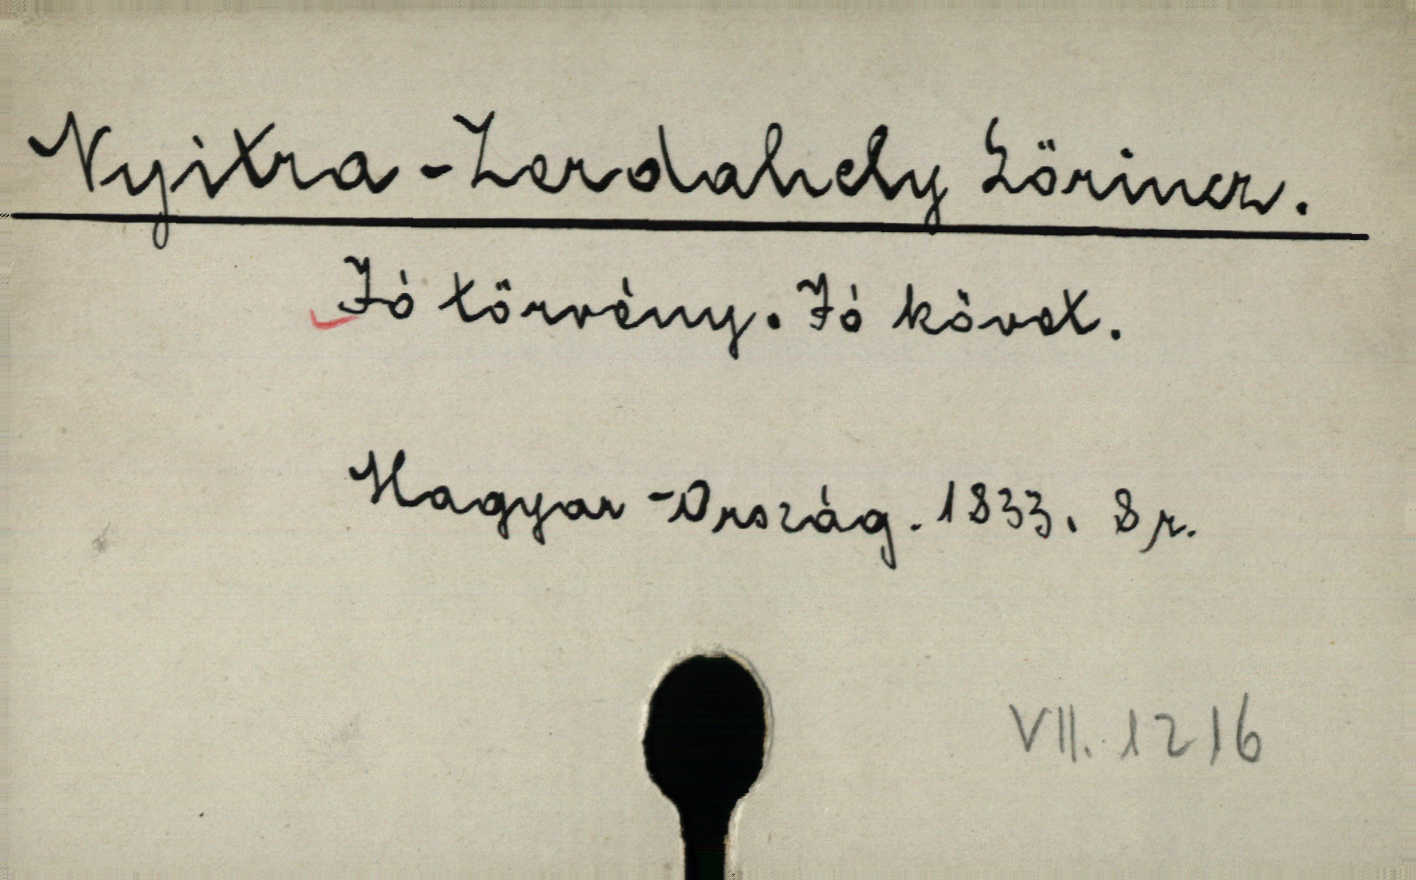 Nyitra-Zerdahely Lörincz.
Jó törvény. Jó követ.
Magyar-Ország. 1833. 8 r.
VII. 1216